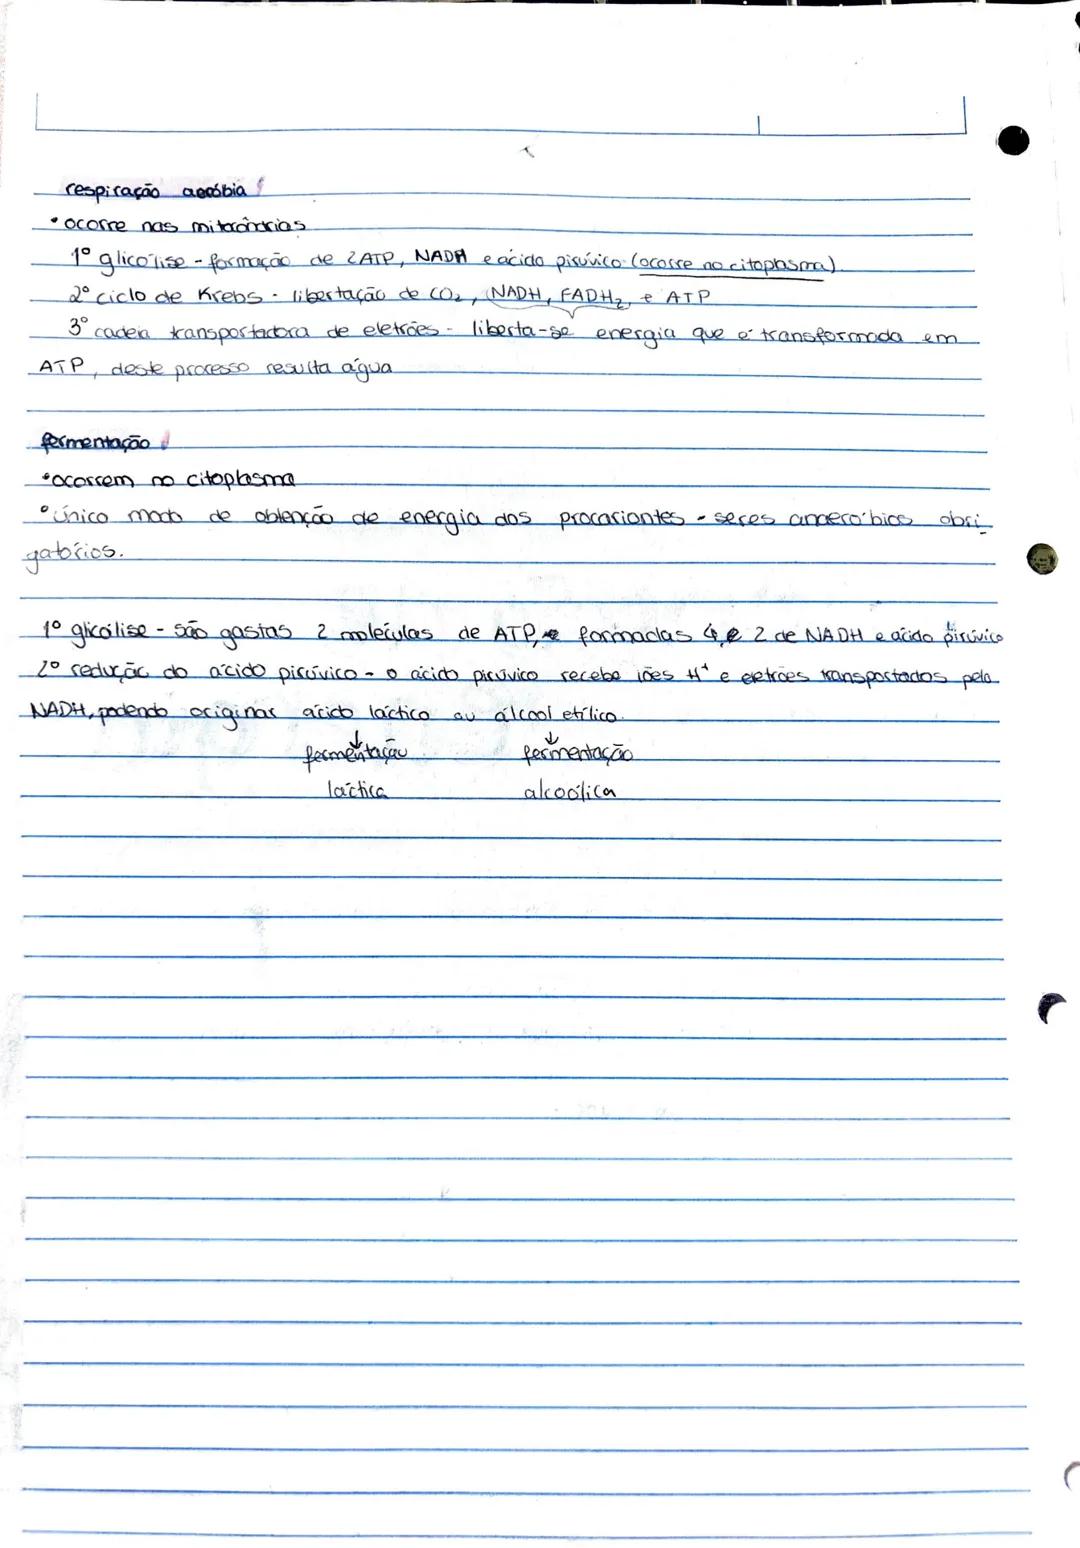 respiração aeróbia
• ocorre nas mitocôndrias
1º glicólise - formação de 2ATP, NADH e ácido pirúvico (ocorre no citoplasma)
2º ciclo de Krebs - libertação de CO₂, NADH, FADH₂, e ATP
3º cadeia transportadora de eletrões - liberta-se energia que é transformada em
ATP, deste processo resulta água
fermentação
• ocorrem no citoplasma
• único modo de obtenção de energia dos procariontes - seres anaeróbios obri
gatórios.
1º glicólise - são gastas 2 moléculas de ATP, e formadas 4 e 2 de NADH e ácido pirúvico
2º redução do ácido pirúvico - o ácido pirúvico recebe iões H⁺ e eletrões transportados pela
NADH, podendo originar ácido láctico ou álcool etílico.
↓ ↓
fermentação fermentação
láctica alcoólica